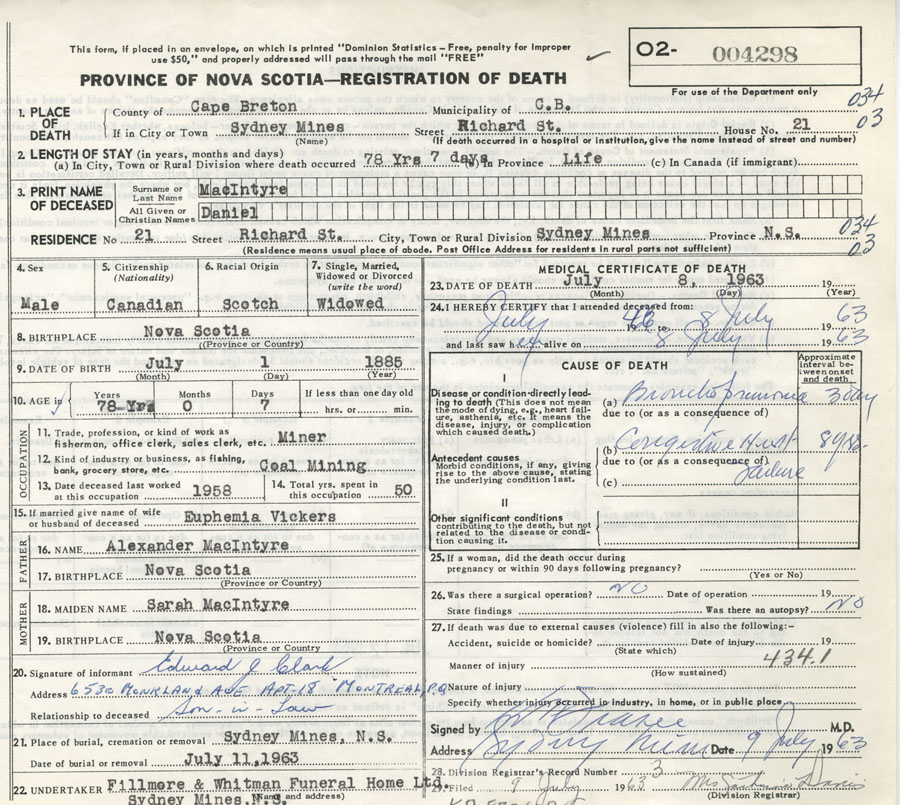 This form, if placed in an envelope, on which is printed "Dominion Statistics – Free, penalty for improper
use $50," and properly addressed will pass through the mail "FREE"
O2- 004298
For use of the Department only
PROVINCE OF NOVA SCOTIA—REGISTRATION OF DEATH
034
03
1. PLACE OF DEATH
County of Cape Breton Municipality of C.B.
If in City or Town Sydney Mines Street Richard St. House No. 21
(Name) (If death occurred in a hospital or institution, give the name instead of street and number)
2. LENGTH OF STAY (in years, months and days)
(a) In City, Town or Rural Division where death occurred 78 Yrs 7 days (b) In Province Life (c) In Canada (if immigrant)
3. PRINT NAME OF DECEASED
Surname or Last Name MacIntyre
All Given or Christian Names Daniel
034
03
RESIDENCE No 21 Street Richard St. City, Town or Rural Division Sydney Mines Province N.S.
(Residence means usual place of abode. Post Office Address for residents in rural parts not sufficient)
4. Sex Male
5. Citizenship (Nationality) Canadian
6. Racial Origin Scotch
7. Single, Married, Widowed or Divorced (write the word) Widowed
8. BIRTHPLACE Nova Scotia
(Province or Country)
9. DATE OF BIRTH July 1 1885
(Month) (Day) (Year)
10. AGE in Years Months Days If less than one day old
78 Yrs 0 7 hrs. or min.
OCCUPATION
11. Trade, profession, or kind of work as
fisherman, office clerk, sales clerk, etc. Miner
12. Kind of industry or business, as fishing,
bank, grocery store, etc. Coal Mining
13. Date deceased last worked at this occupation 1958
14. Total yrs. spent in this occupation 50
15. If married give name of wife
or husband of deceased Euphemia Vickers
FATHER
16. NAME Alexander MacIntyre
17. BIRTHPLACE Nova Scotia
(Province or Country)
MOTHER
18. MAIDEN NAME Sarah MacIntyre
19. BIRTHPLACE Nova Scotia
(Province or Country
20. Signature of informant Edward J Clark
Address 6530 Monkland Ave Apt-18 Montreal, P.Q
Relationship to deceased Son-in-Law
21. Place of burial, cremation or removal Sydney Mines, N.S.
Date of burial or removal July 11,1963
22. UNDERTAKER Fillmore & Whitman Funeral Home Ltd.
Sydney Mines, N.S.
(Name and address)
MEDICAL CERTIFICATE OF DEATH
23. DATE OF DEATH July 8, 1963 19
(Month) (Day) (Year)
24. I HEREBY CERTIFY that I attended deceased from:
July 19 46 to 8 July 19 63
and last saw h er alive on 8 July 19 63
CAUSE OF DEATH
Approximate interval between onset and death
I
Disease or condition directly leading to death (This does not mean
the mode of dying, e.g., heart failure, asthenia, etc. It means the
disease, injury, or complication
which caused death.)
(a) Broncho pneumonia 3 day
due to (or as a consequence of)
(b) Congestive Heart 8 yrs
due to (or as a consequence of)
Failure
(c)
Antecedent causes
Morbid conditions, if any, giving
rise to the above cause, stating
the underlying condition last.
II
Other significant conditions
contributing to the death, but not
related to the disease or condition causing it.
25. If a woman, did the death occur during
pregnancy or within 90 days following pregnancy?
(Yes or No)
26. Was there a surgical operation? NO Date of operation 19
State findings Was there an autopsy? NO
27. If death was due to external causes (violence) fill in also the following:–
Accident, suicide or homicide? Date of injury 19
(State which)
434.1
Manner of injury
(How sustained)
Nature of injury
Specify whether injury occurred in industry, in home, or in public place
Signed by M.D.
Address Sydney Mines Date 9 July 19 63
28. Division Registrar's Record Number 3
29. Filed 9 July 19 63
(Division Registrar)